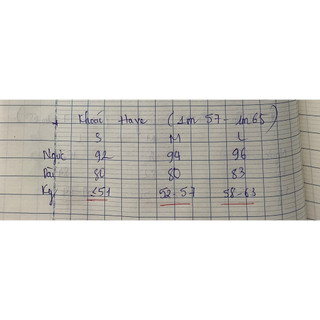 Khoác Have (1m 57 - 1m65)
S M L
Ngực 92 94 96
Dài 80 80 83
Kg ≤51 52-57 58-63